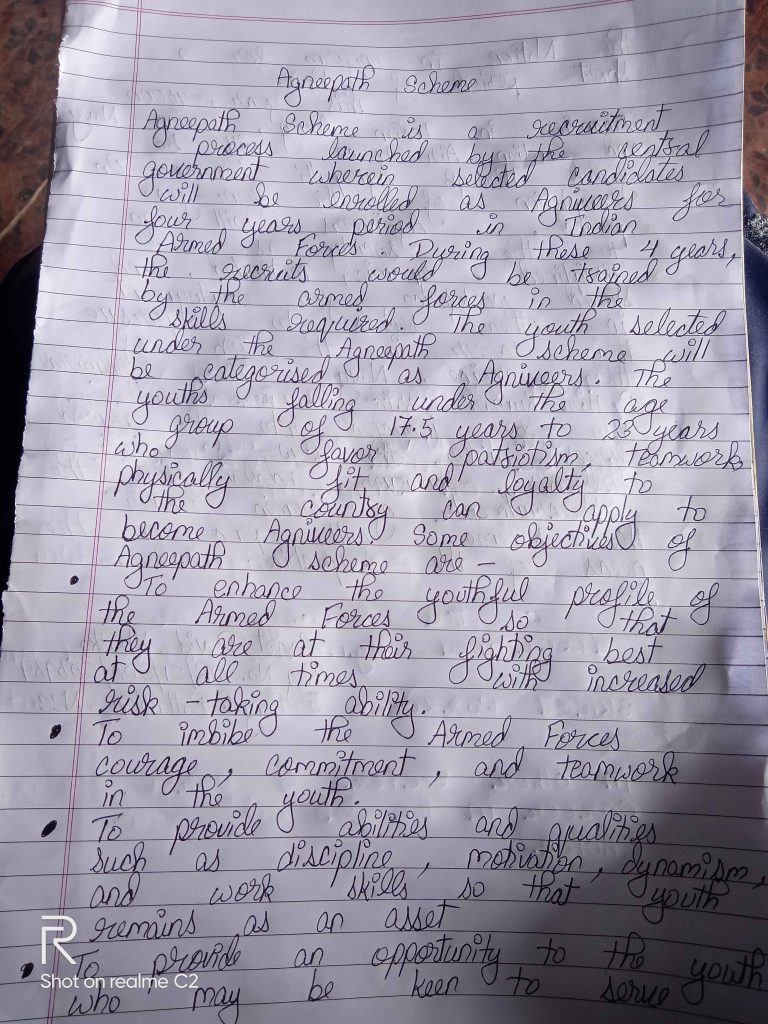 Agneepath Scheme
Agneepath Scheme is a recruitment
process launched by the central
government wherein selected candidates
will be enrolled as Agniveers for
four years period in Indian
Armed Forces. During these 4 years,
the recruits would be trained
by the armed forces in the
skills required. The youth selected
under the Agneepath scheme will
be categorised as Agniveers. The
youths falling under the age
group of 17.5 years to 23 years
who favor patriotism, teamwork,
physically fit and loyalty to
the country can apply to
become Agniveers. Some objectives of
Agneepath scheme are -
• To enhance the youthful profile of
the Armed Forces so that
they are at their fighting best
at all times with increased
risk - taking ability.
• To imbibe the Armed Forces
courage, commitment, and teamwork
in the youth.
• To provide abilities and qualities
such as discipline, motivation, dynamism,
and work skills so that youth
remains as an asset
• To provide an opportunity to the youth
who may be keen to serve
R
Shot on realme C2